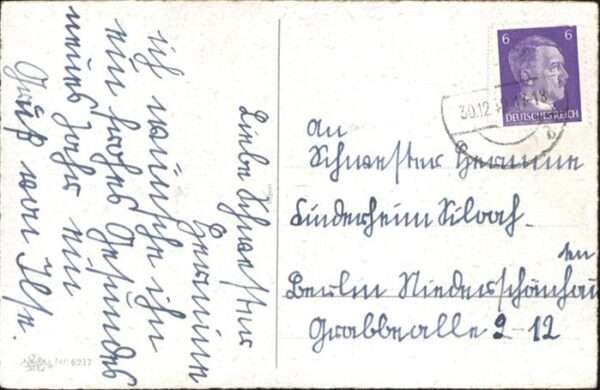 Liebe Schwester
Hermine
ich wünsche ihn
ein frohes Gesundes
neues Jahr ein
Gruß von Ilse.
6 6
DEUTSCHES REICH
30.12
b
An
Schwester Hermine
Kinderheim Siloah.
Berlin Niederschönhau
sen
Grabbealle 2-12
Nr. 6217